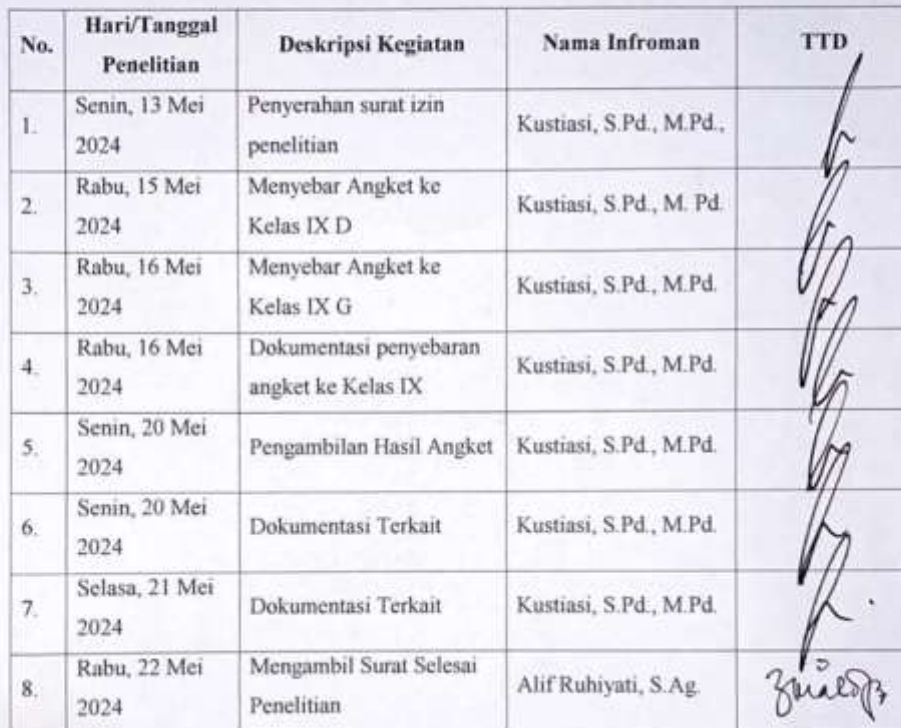 No. Hari/Tanggal Penelitian Deskripsi Kegiatan Nama Infroman TTD
1. Senin, 13 Mei 2024 Penyerahan surat izin penelitian Kustiasi, S.Pd., M.Pd.,
2. Rabu, 15 Mei 2024 Menyebar Angket ke Kelas IX D Kustiasi, S.Pd., M. Pd.
3. Rabu, 16 Mei 2024 Menyebar Angket ke Kelas IX G Kustiasi, S.Pd., M.Pd.
4. Rabu, 16 Mei 2024 Dokumentasi penyebaran angket ke Kelas IX Kustiasi, S.Pd., M.Pd.
5. Senin, 20 Mei 2024 Pengambilan Hasil Angket Kustiasi, S.Pd., M.Pd.
6. Senin, 20 Mei 2024 Dokumentasi Terkait Kustiasi, S.Pd., M.Pd.
7. Selasa, 21 Mei 2024 Dokumentasi Terkait Kustiasi, S.Pd., M.Pd.
8. Rabu, 22 Mei 2024 Mengambil Surat Selesai Penelitian Alif Ruhiyati, S.Ag.